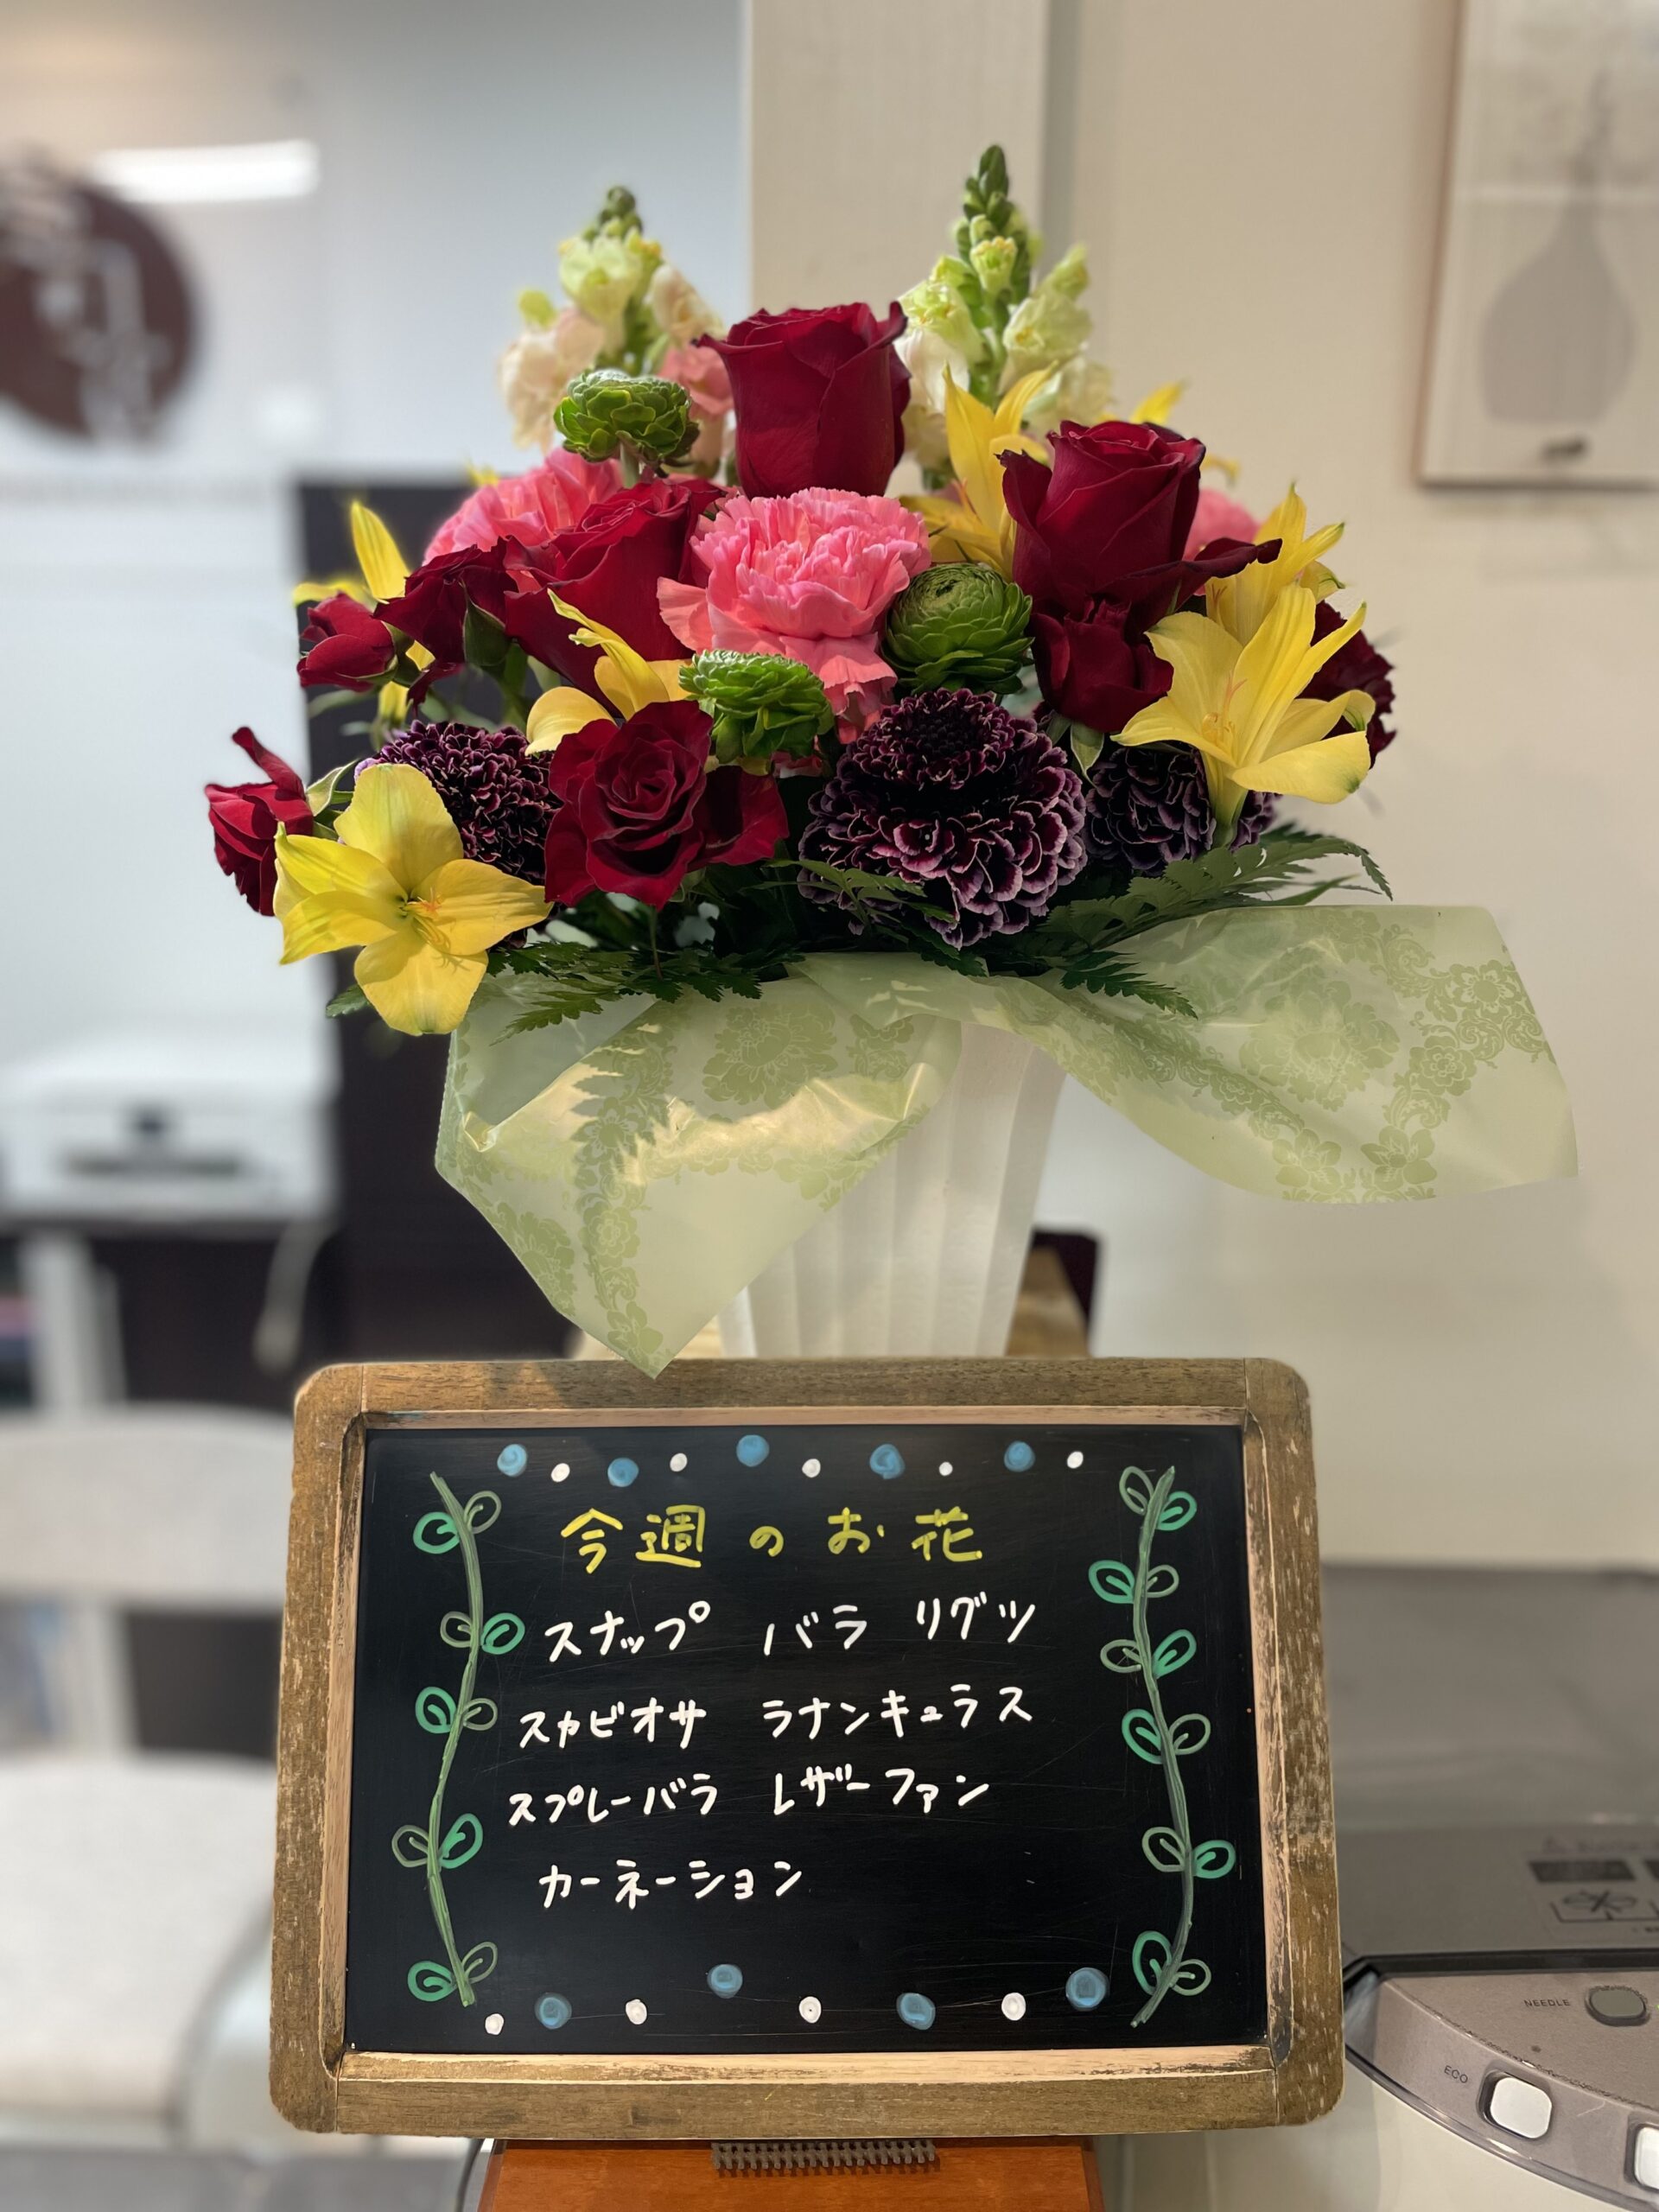 今週のお花
スナップ バラ リグツ
スカビオサ ラナンキュラス
スプレーバラ レザーファン
カーネーション
NEEDLE
ECO